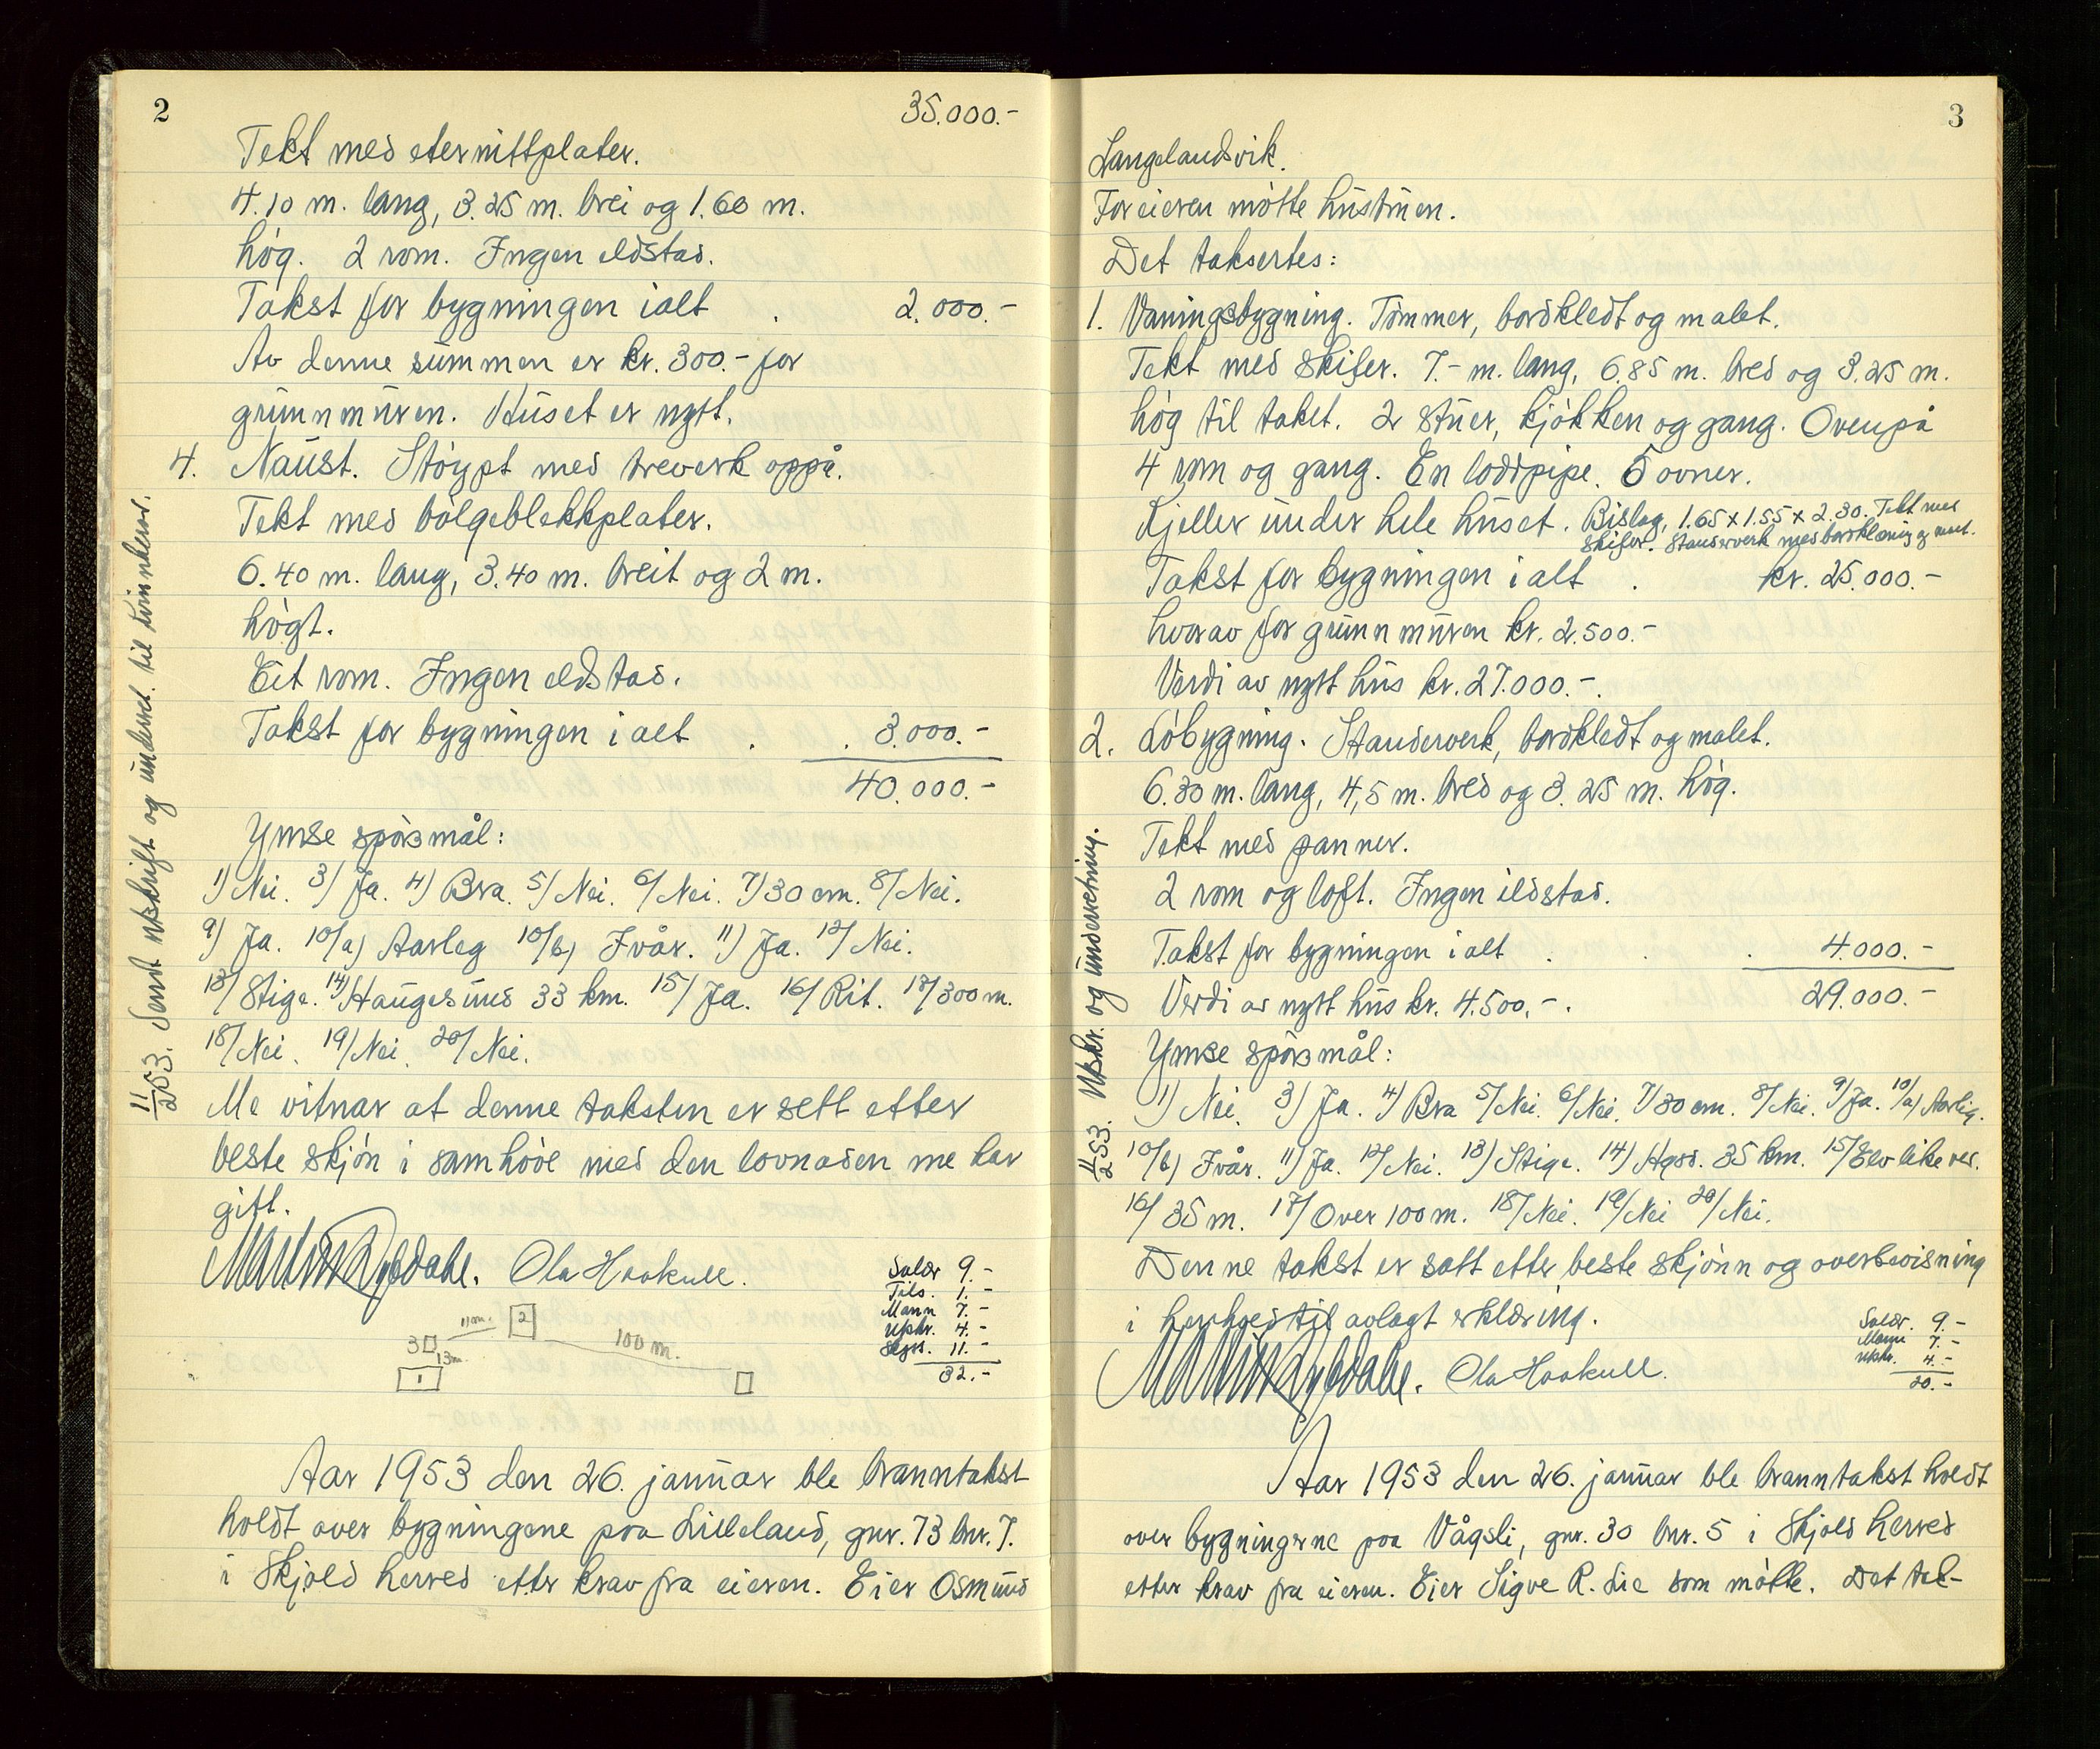 2
35.000.-
Tekt med eternittplater.
4.10 m. lang, 3.25 m. brei og 1.60 m.
høg. 2 rom. Ingen eldstad.
Takst for bygningen ialt . 2.000.-
Av denne summen er kr. 300.- for
grunnmuren. Huset er nytt.
4. Naust. Støypt med treverk oppå.
Tekt med bølgeblekkplater.
6.40 m. lang, 3.40 m. breit og 2 m.
høgt.
Eit rom. Ingen eldstad.
Takst for bygningen i alt . . 3.000.-
40.000.-
Ymse spörsmål:
1) Nei. 3) Ja. 4) Bra. 5/ Nei. 6/ Nei. 7/ 30 cm. 8/ Nei.
9) Ja. 10/a) Aarleg 10/b) Fvår. 11) Ja. 12/ Nei.
13/ Stige. 14/ Haugesund 33 km. 15/ Ja. 16/ Rit. 17/ 300 m.
18/ Nei. 19/ Nei. 20/ Nei.
Me vitnar at denne taksten er sett etter
beste skjøn i samhøve med den lovnaden me har
gitt.
Ola Haakull.
Salær 9.-
Tils. 1.-
Mann 7.-
Utskr. 4.-
Skyss. 11.-
32.-
11 m. 2
3 100 m.
13 m
1
11/2 53. Sendt utskrift og underret. til
Aar 1953 den 26. januar ble branntakst
holdt over bygningene paa Lilleland, gnr. 73 bnr. 7.
i Skjold herred etter krav fra eieren. Eier Osmund
3
Langelandsvik.
For eieren møtte hustruen.
Det taksertes:
1. Vaningsbygning. Tømmer, bordkledt og malet.
Tekt med skifer. 7.- m. lang, 6.85 m. bred og 3.25 m.
høg til taket. 2 stuer, kjøkken og gang. Ovenpå
4 rom og gang. En loddpipe. 5 ovner.
Kjeller under hele huset. Bislag, 1.65 x 1.55 x 2.30. Tekt med
skifer. Standerverk med bordkledning og malt.
Takst for bygningen i alt . kr. 25.000.-
hvorav for grunnmuren kr. 2.500.-
Verdi av nytt hus kr. 27.000.-.
2. Løbygning. Standerverk, bordkledt og malet.
6.30 m. lang, 4,5 m. bred og 3.25 m. høg.
Tekt med panner.
2 rom og loft. Ingen ildstad.
Takst for bygningen i alt . . . 4.000.-
Verdi av nytt hus kr. 4.500.-. 29.000.-
Ymse spörsmål:
1) Nei. 3) Ja. 4) Bra 5/ Nei. 6/ Nei. 7/ 30 cm. 8/ Nei. 9/ Ja. 10/a) Aarlig.
10/b) Fvår. 11) Ja. 12/ Nei. 13) Stige. 14) Hgsd. 35 km. 15/ Elv like ved.
16/ 35 m. 17/ Over 100 m. 18/ Nei. 19/ Nei 20/ Nei.
Denne takst er satt etter beste skjønn og overbevisning
i henhold til avlagt erklæring.
Ola Haakull.
Salær. 9.-
Mann 7.-
Utskr. 4.-
20.-
11/2 53. Utskr. og underretning.
Aar 1953 den 26. januar ble branntakst holdt
over bygningerne paa Vågsli, gnr. 30 bnr. 5 i Skjold herred
etter krav fra eieren. Eier Sigve R. Lie som møtte. Det tak-